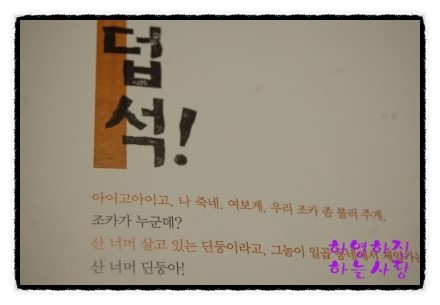 덥
석!
아이고아이고, 나 죽네. 여보게, 우리 조카 좀 불러 주게.
조카가 누군데?
산 너머 살고 있는 딘둥이라고, 그놈이 일곱 동네에서
산 너머 딘둥아!
하영하진
하늘사랑